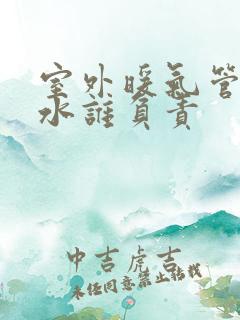 室外暖氣管
水誰負責
中吉虎吉
未经同意禁止转载